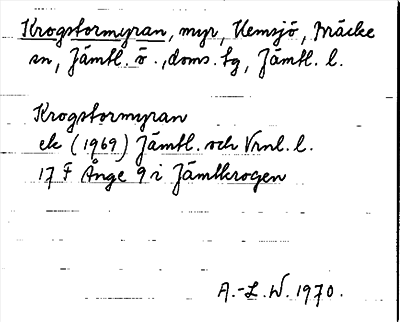 Krogstormyran, myr, Hemsjö, Bräcke
sn, Jämtl. ö., doms. tg, Jämtl. l.
Krogstormyran
ek (1969) Jämtl. och Vrnl. l.
17 F Ånge 9 i Jämtkrogen
A.-L. W. 1970.